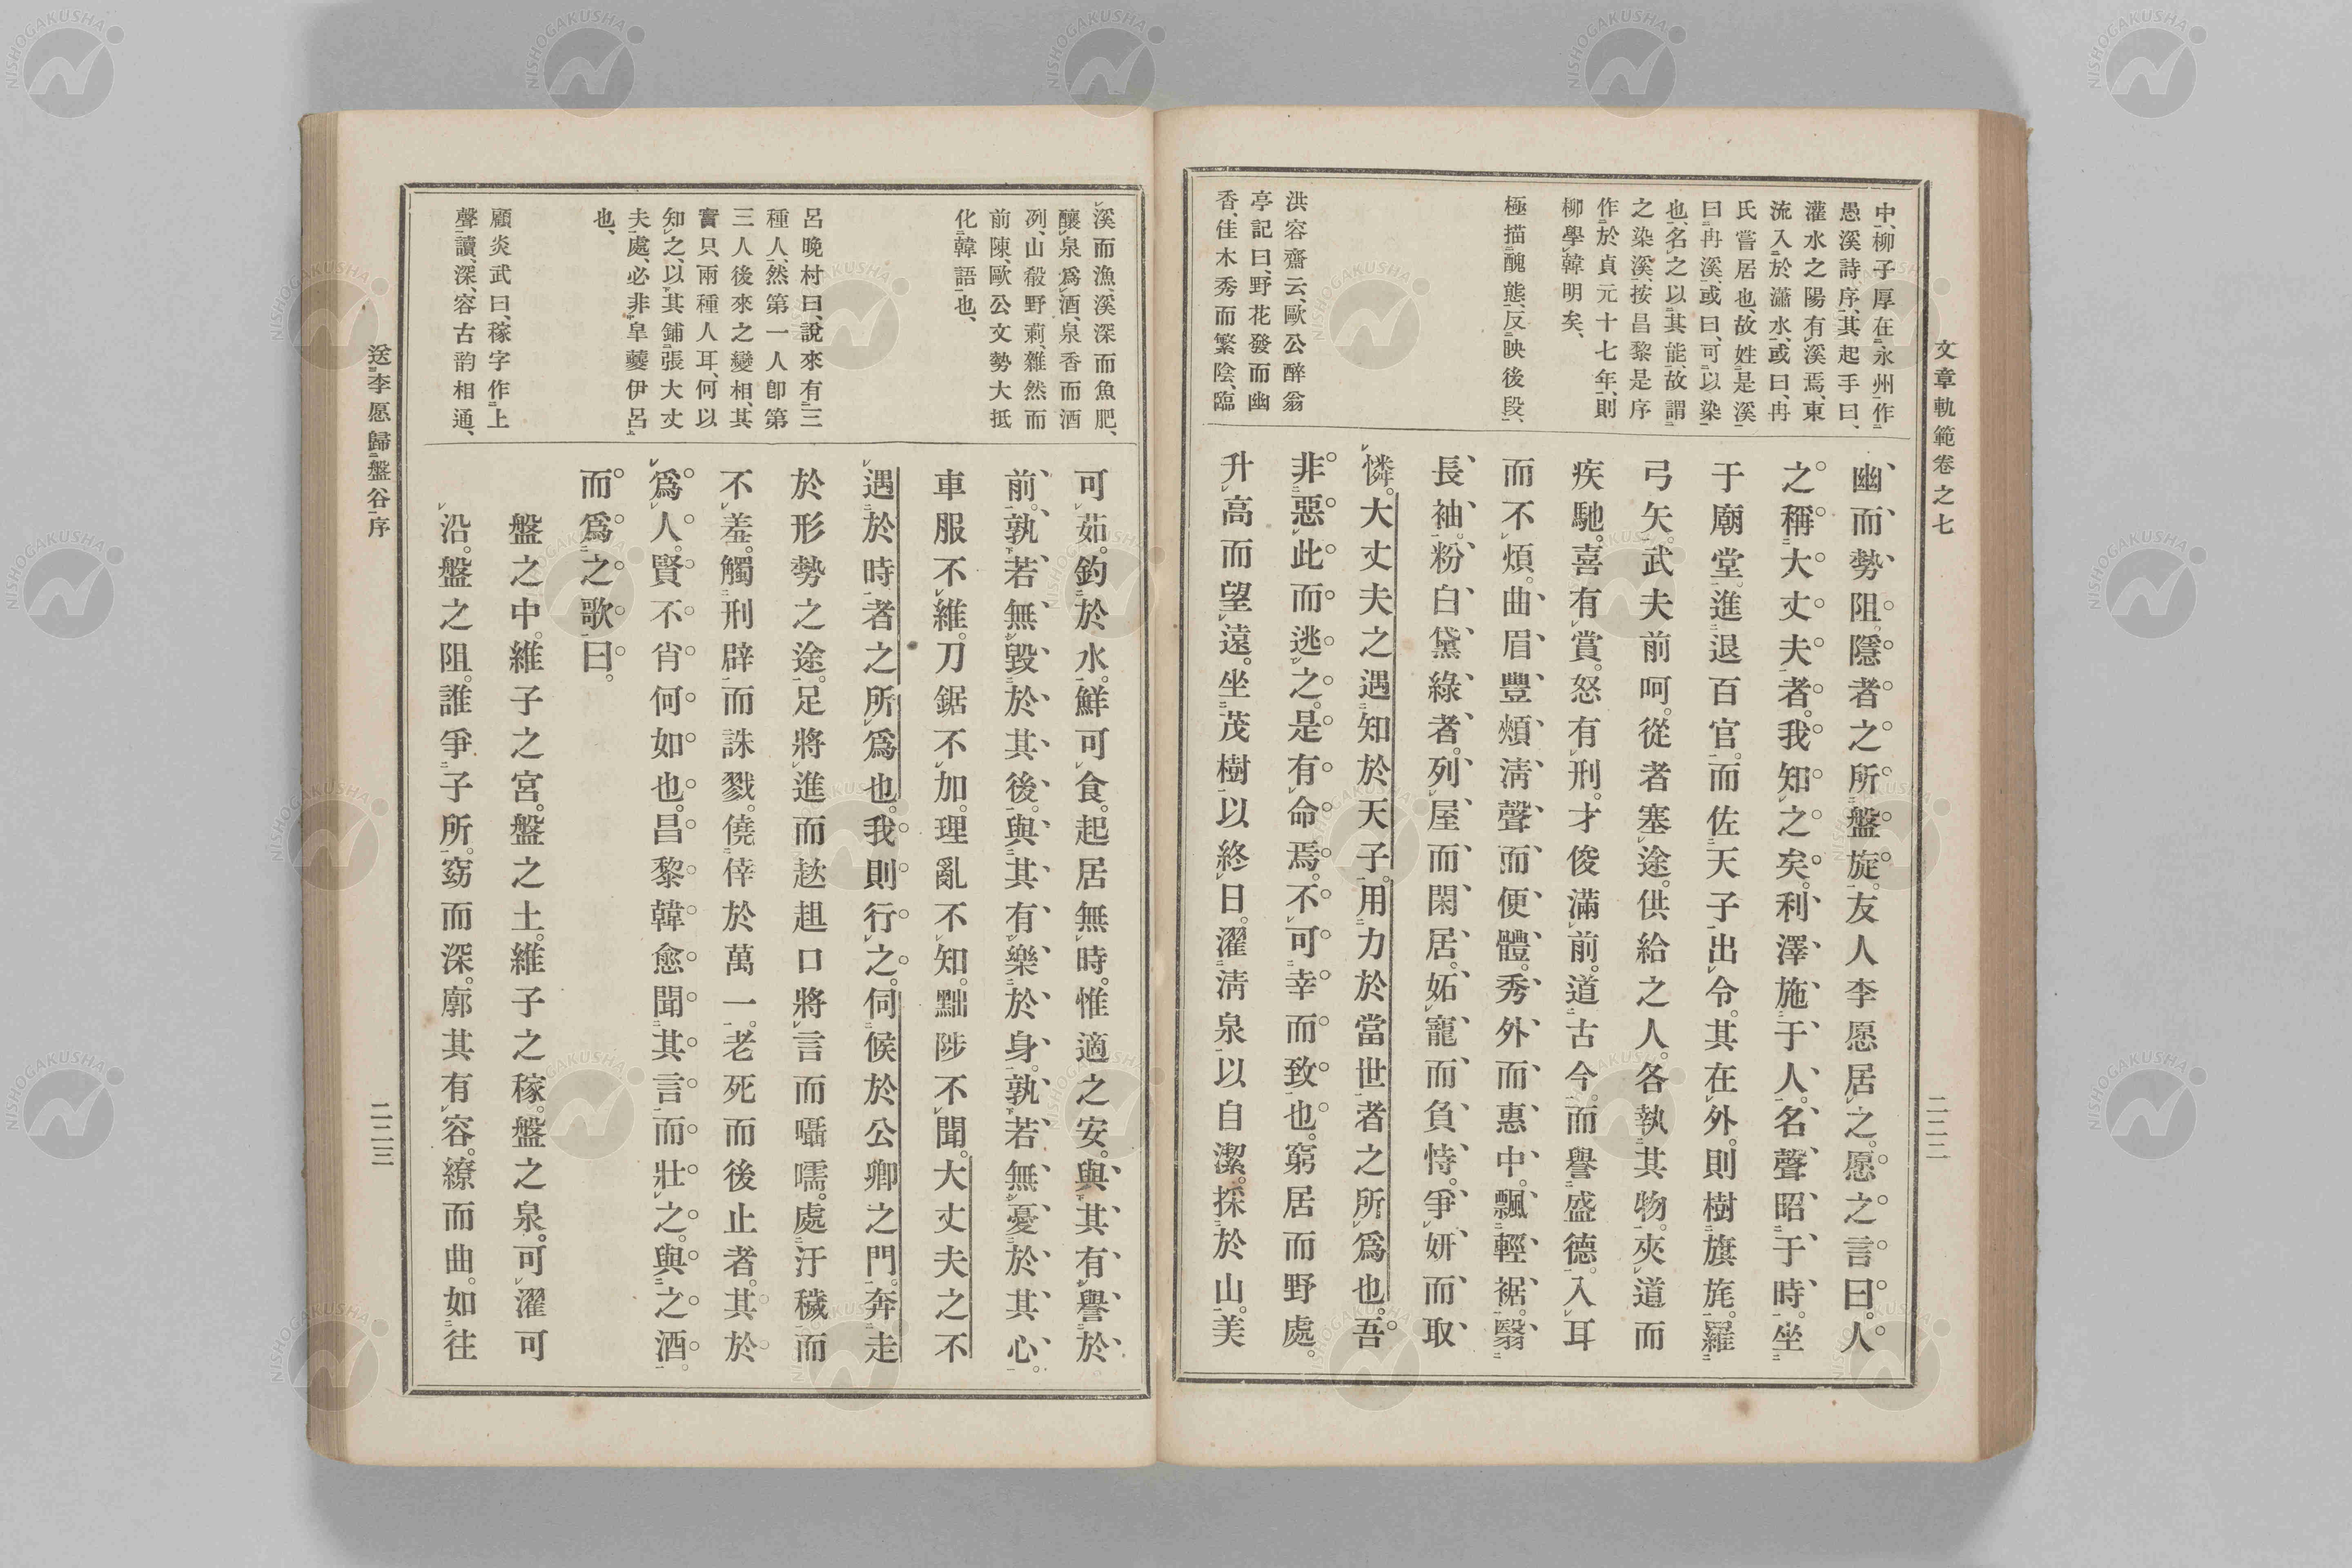 文章軌範卷之七
二二二
中、柳子厚在永州作
愚溪詩序、其起手曰、
灌水之陽有溪焉、東
流入於瀟水、或曰、冉
氏嘗居也、故姓是溪
曰冉溪、或曰、可以染
也、名之以其能、故謂
之染溪、按昌黎是序
作於貞元十七年、則
柳學韓明矣、
極描醜態、反映後段、
洪容齋云、歐公醉翁
亭記曰、野花發而幽
香、佳木秀而繁陰、臨
幽而勢阻。隱者之所盤旋。友人李愿居之。愿之言曰。人
之稱大丈夫者。我知之矣。利澤施于人。名聲昭于時。坐
于廟堂。進退百官。而佐天子出令。其在外。則樹旗旄。羅
弓矢。武夫前呵。從者塞途。供給之人。各執其物。夾道而
疾馳。喜有賞。怒有刑。才俊滿前。道古今。而譽盛德。入耳
而不煩。曲眉豐頰、淸聲而便體。秀外而惠中。飄輕裾。翳
長袖。粉白黛綠者。列屋而閑居。妬寵而負恃。爭姸而取
憐。大丈夫之遇知於天子。用力於當世者之所爲也。吾
非惡此而逃之。是有命焉。不可幸而致也。窮居而野處。
升高而望遠。坐茂樹以終日。濯淸泉以自潔。採於山。美
溪而漁、溪深而魚肥、
釀泉爲酒、泉香而酒
冽、山殽野蔌、雜然而
前陳、歐公文勢大抵
化韓語也、
呂晚村曰、說來有三
種人、然第一人卽第
三人後來之變相、其
實只兩種人耳、何以
知之、以其鋪張大丈
夫處、必非皐夔伊呂
也、
顧炎武曰、稼字作上
聲讀、深、容古韵相通、
可茹。釣於水。鮮可食。起居無時。惟適之安。與其有譽於
前。孰若無毀於其後。與其有樂於身。孰若無憂於其心。
車服不維。刀鋸不加。理亂不知。黜陟不聞。大丈夫之不
遇於時者之所爲也。我則行之。伺候於公卿之門。奔走
於形勢之途。足將進而趑趄口將言而囁嚅。處汙穢而
不羞。觸刑辟而誅戮。僥倖於萬一。老死而後止者。其於
爲人。賢不肖何如也。昌黎韓愈聞其言而壯之。與之酒。
而爲之歌曰。
盤之中。維子之宮。盤之土。維子之稼。盤之泉。可濯可
沿。盤之阻。誰爭子所。窈而深。廓其有容。繚而曲。如往
送李愿歸盤谷序
二二三